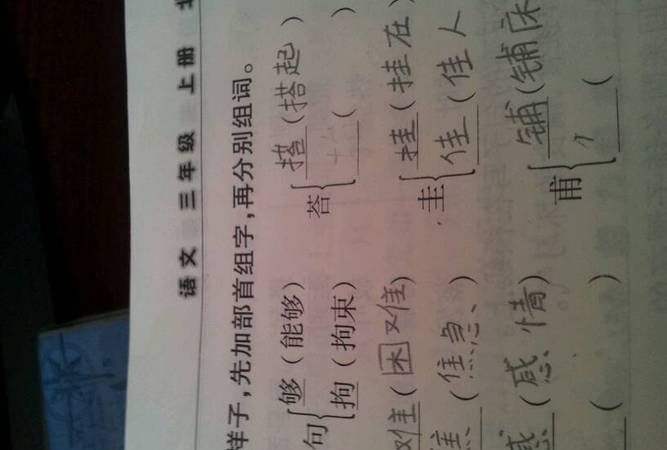 语文 三年级 上册
样子,先加部首组字,再分别组词。
够(能够) 搭(搭起)
句 荅
拘(拘束) (
难(困难) 挂(挂在)
圭
焦(焦急) 佳(佳人
感(感情) 铺(铺床
甫
( ) (